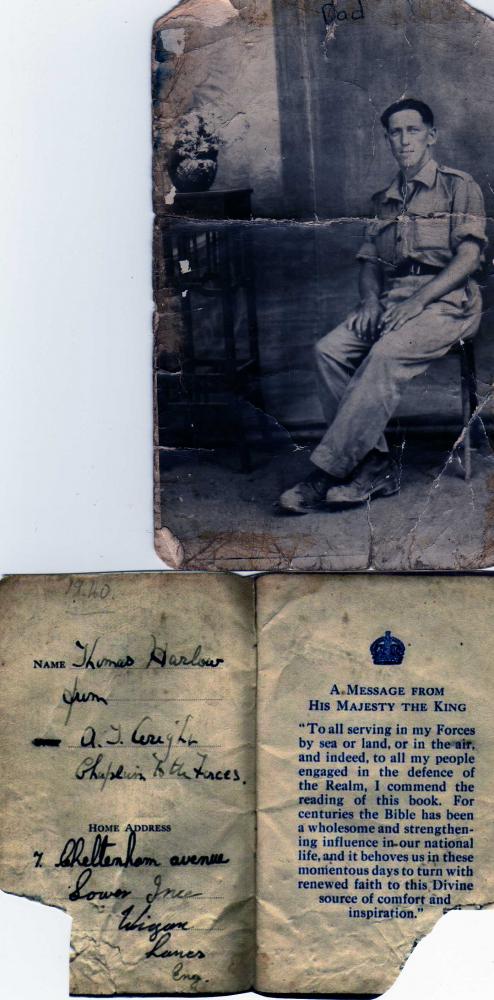 Dad
1940.
NAME Thomas Harlow
from
A. J. Wright
Chaplain to the Forces.
HOME ADDRESS
7. Cheltenham avenue
Lower Ince
Wigan
Lancs
Eng.
A MESSAGE FROM
HIS MAJESTY THE KING
"To all serving in my Forces
by sea or land, or in the air,
and indeed, to all my people
engaged in the defence of
the Realm, I commend the
reading of this book. For
centuries the Bible has been
a wholesome and strengthen-
ing influence in our national
life, and it behoves us in these
momentous days to turn with
renewed faith to this Divine
source of comfort and
inspiration."